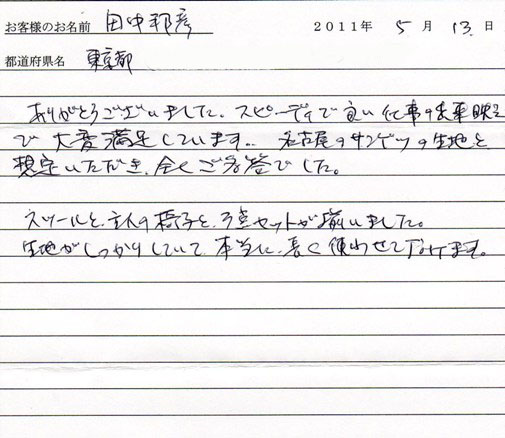 お客様のお名前 田中邦彦 2011年 5月 13日
都道府県名 東京都
ありがとうございました。スピーディで良い仕事の出来映え
で大変満足しています。名古屋のサンゲツの生地を
想定いただき、全く
でした。
スツールと、主人の椅子と、3点セットが揃いました。
生地がしっかりしていて、本当に、長く使わせて頂けます。